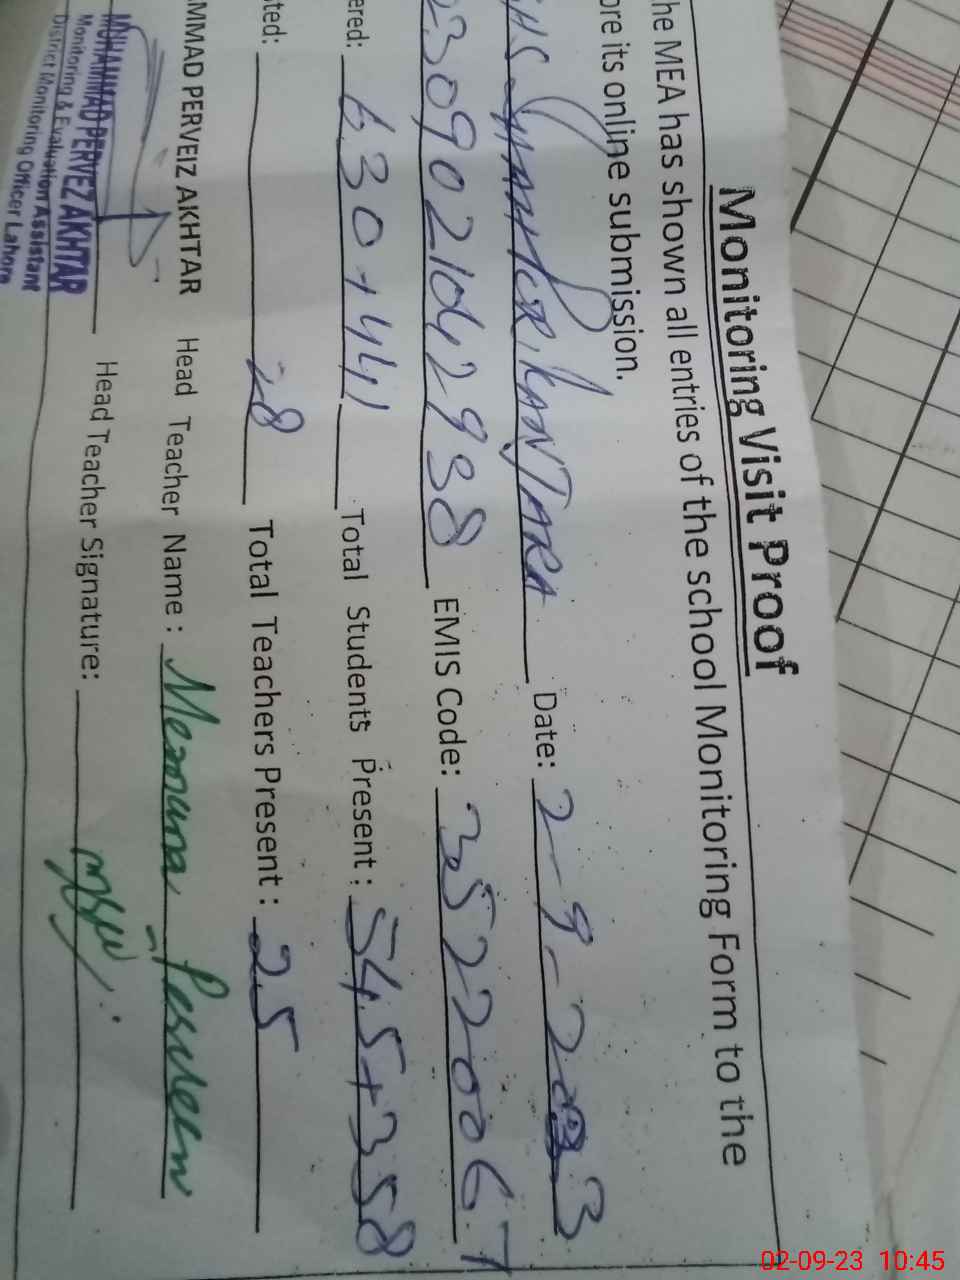 Monitoring Visit Proof
he MEA has shown all entries of the school Monitoring Form to the
ore its online submission.
Date: 2-9-2023
2309021042938 EMIS Code: 35220067
ered: 630+441 Total Students Present: 545+358
ted: 28 Total Teachers Present: 25
MMAD PERVEIZ AKHTAR Head Teacher Name:
Head Teacher Signature:
MUHAMMAD PERVEZ AKHTAR
Monitoring & Evaluation Assistant
District Monitoring Officer Lahore
02-09-23 10:45